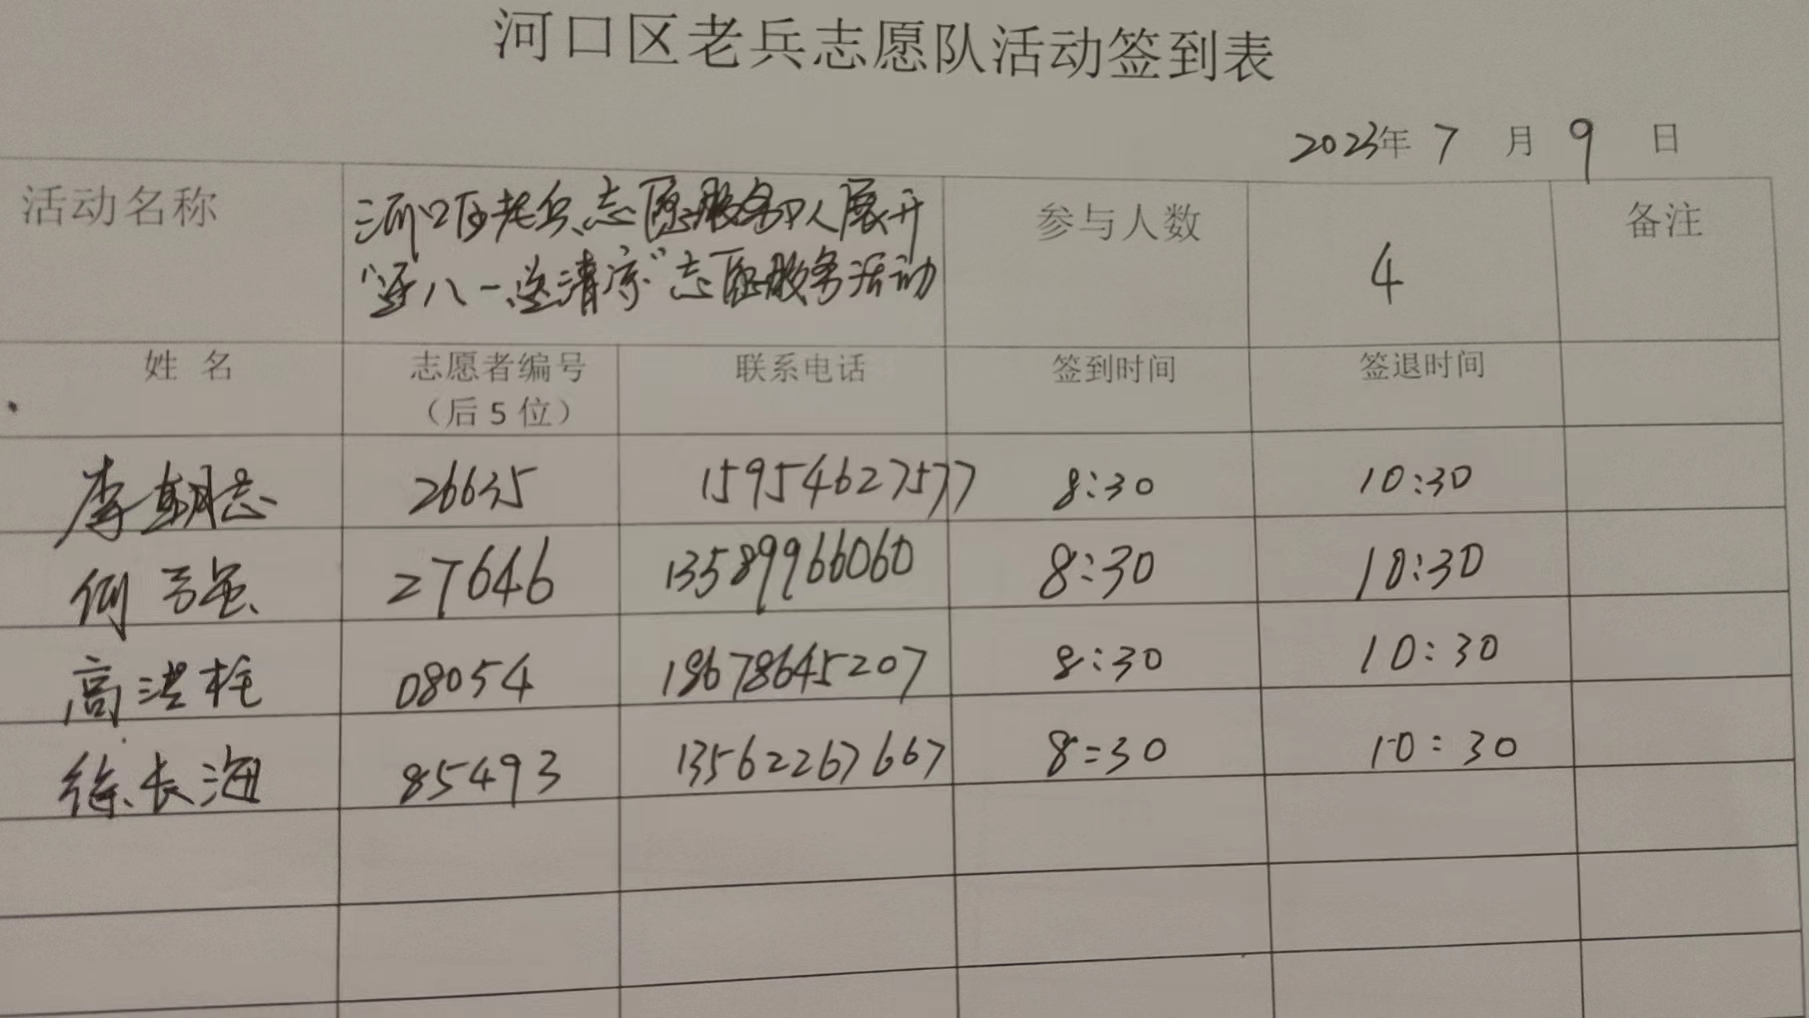 河口区老兵志愿队活动签到表
2023年 7 月 9 日
活动名称
河口区老兵志愿服务队展开
“迎八一送清凉”志愿服务活动
参与人数
4
备注
姓 名
志愿者编号
（后 5 位）
联系电话
签到时间
签退时间
李朝志 26635 15954627577 8:30 10:30
27646 13589966060 8:30 10:30
高洪柱 08054 18678645207 8:30 10:30
徐长海 85493 13562267667 8:30 10:30